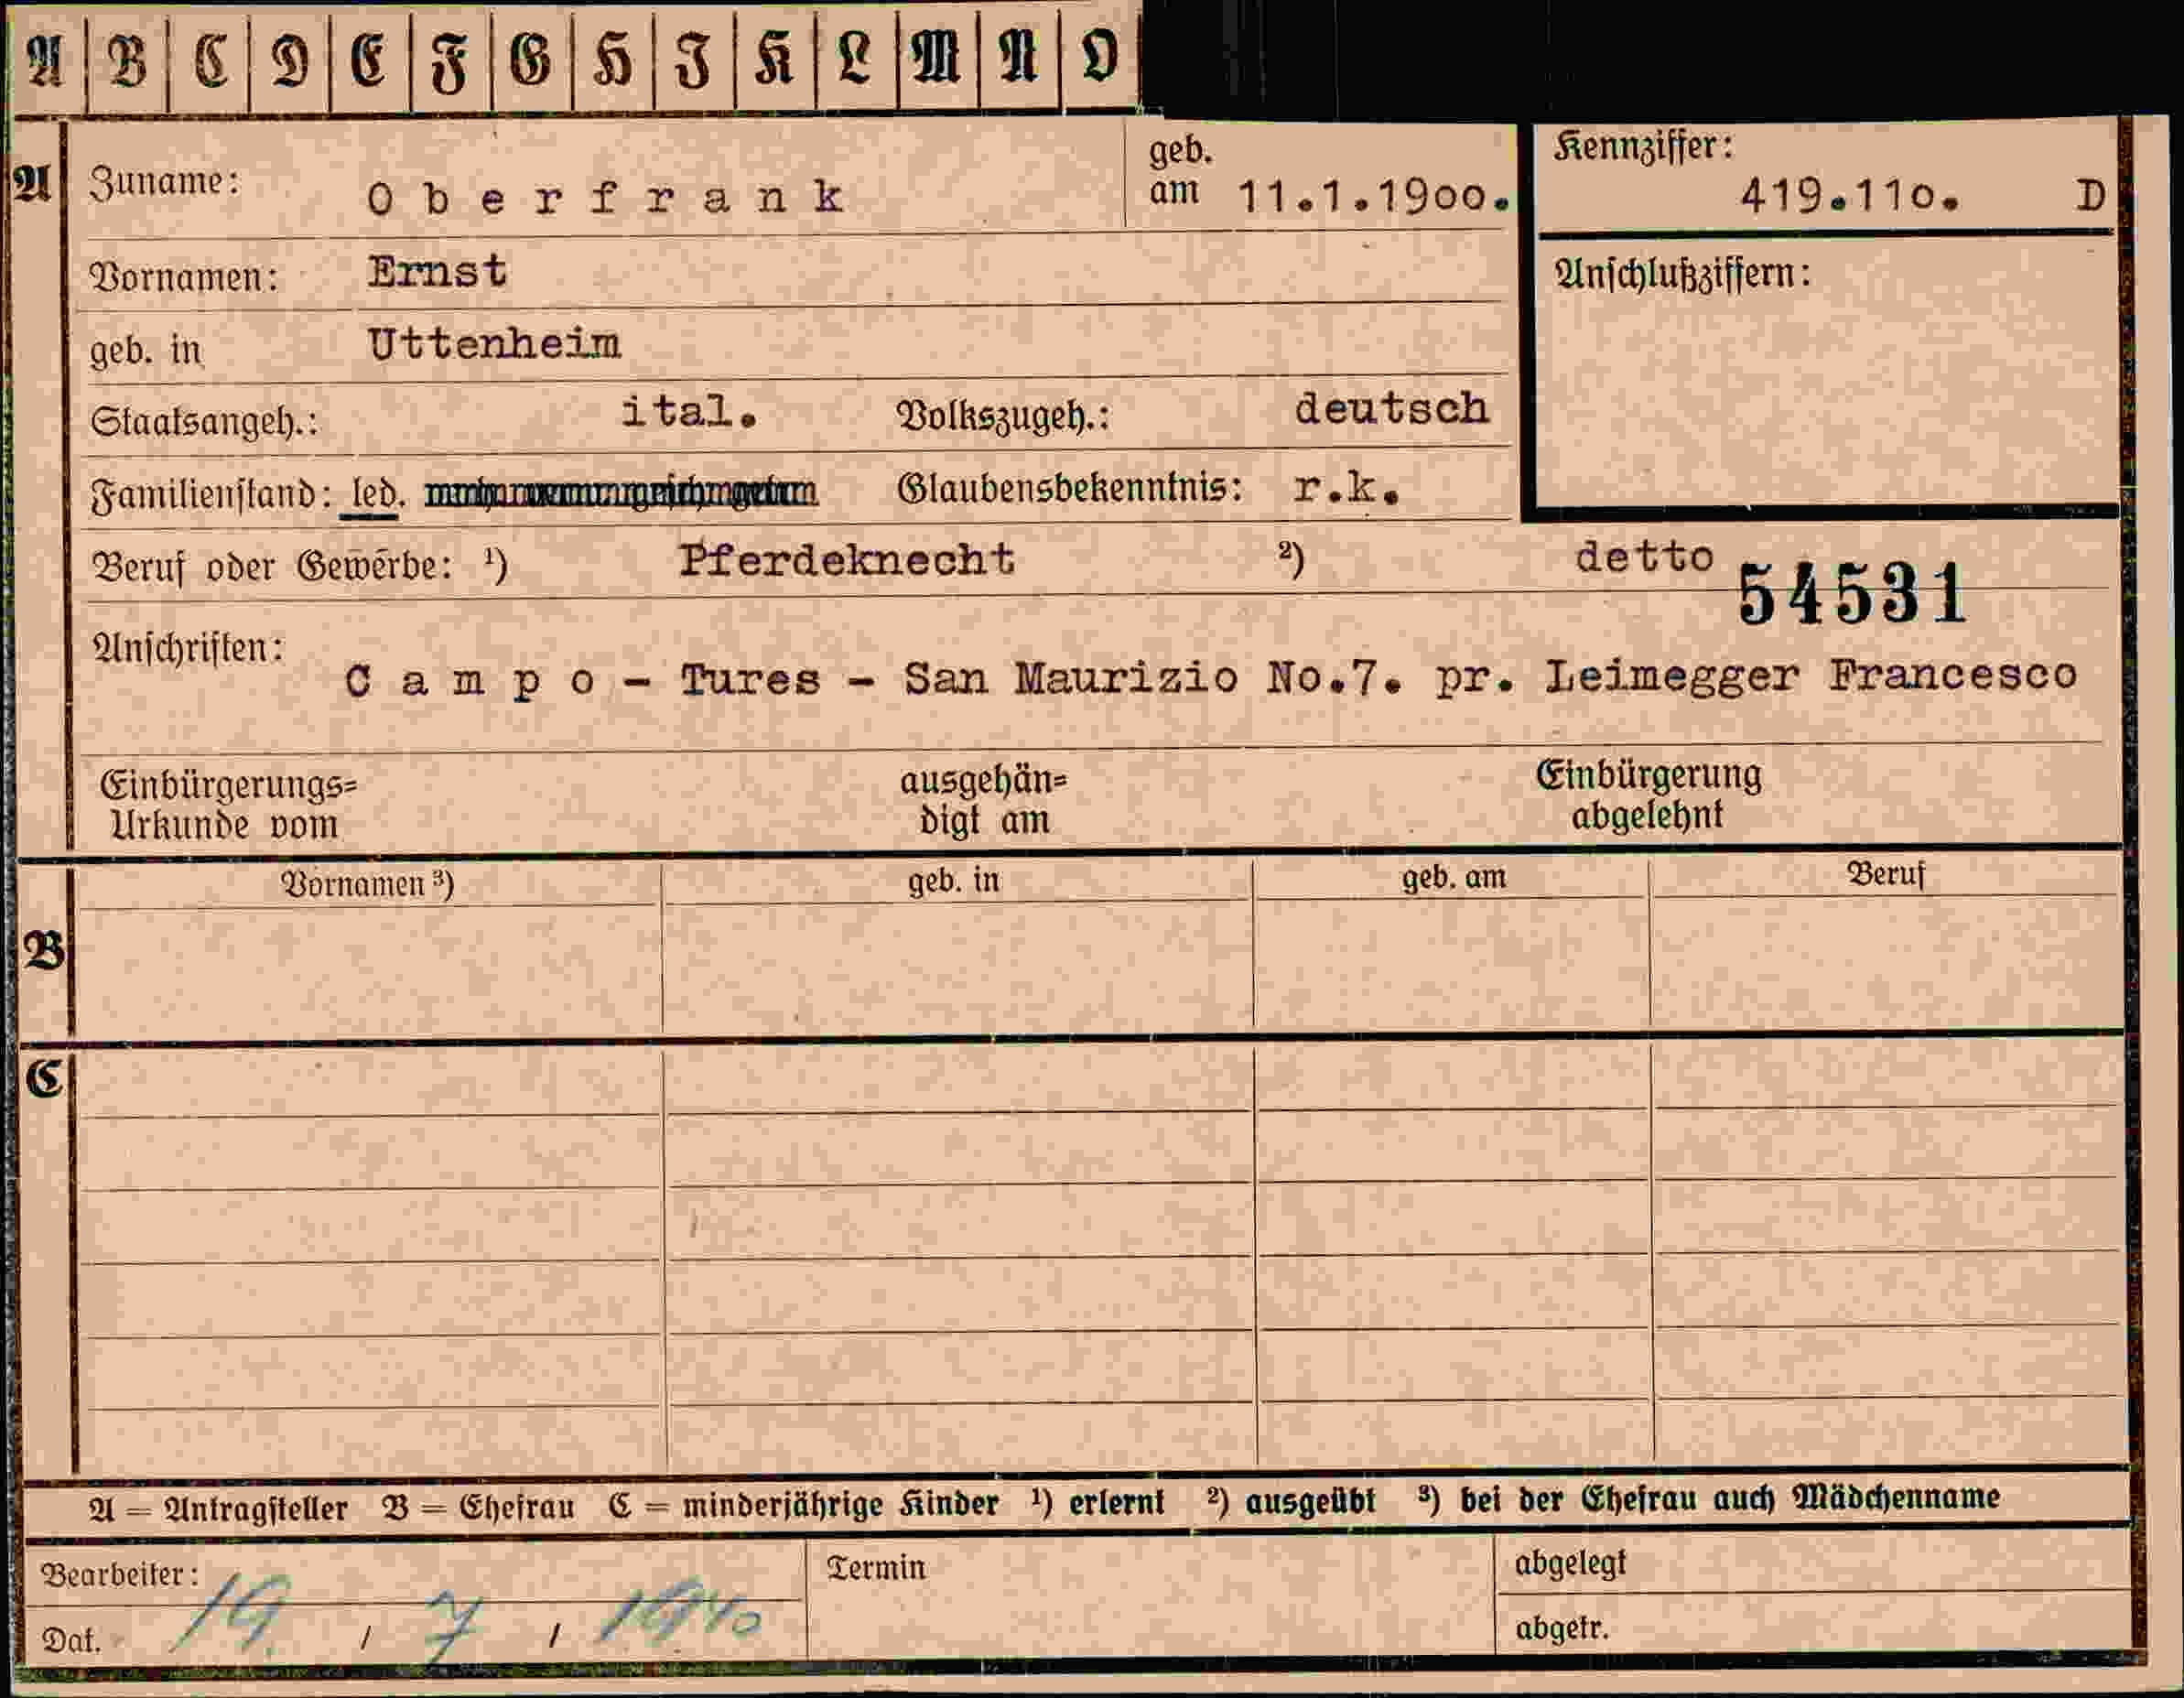 A B C D E F G H J K L M N O
A Zuname: Oberfrank geb. am 11.1.1900. Kennziffer: 419.110. D
Vornamen: Ernst Anschlußziffern:
geb. in Uttenheim
Staatsangeh.: ital. Volkszugeh.: deutsch
Familienstand: led. Glaubensbekenntnis: r.k.
Beruf oder Gewerbe: ¹) Pferdeknecht ²) detto
54531
Anschriften: Campo - Tures - San Maurizio No.7. pr. Leimegger Francesco
Einbürgerungs= ausgehän= Einbürgerung
Urkunde vom digt am abgelehnt
Vornamen ³) geb. in geb. am Beruf
B
C
A = Antragsteller B = Ehefrau C = minderjährige Kinder ¹) erlernt ²) ausgeübt ³) bei der Ehefrau auch Mädchenname
Bearbeiter: Termin abgelegt
Dat. 19 / 7 / 1940 abgetr.